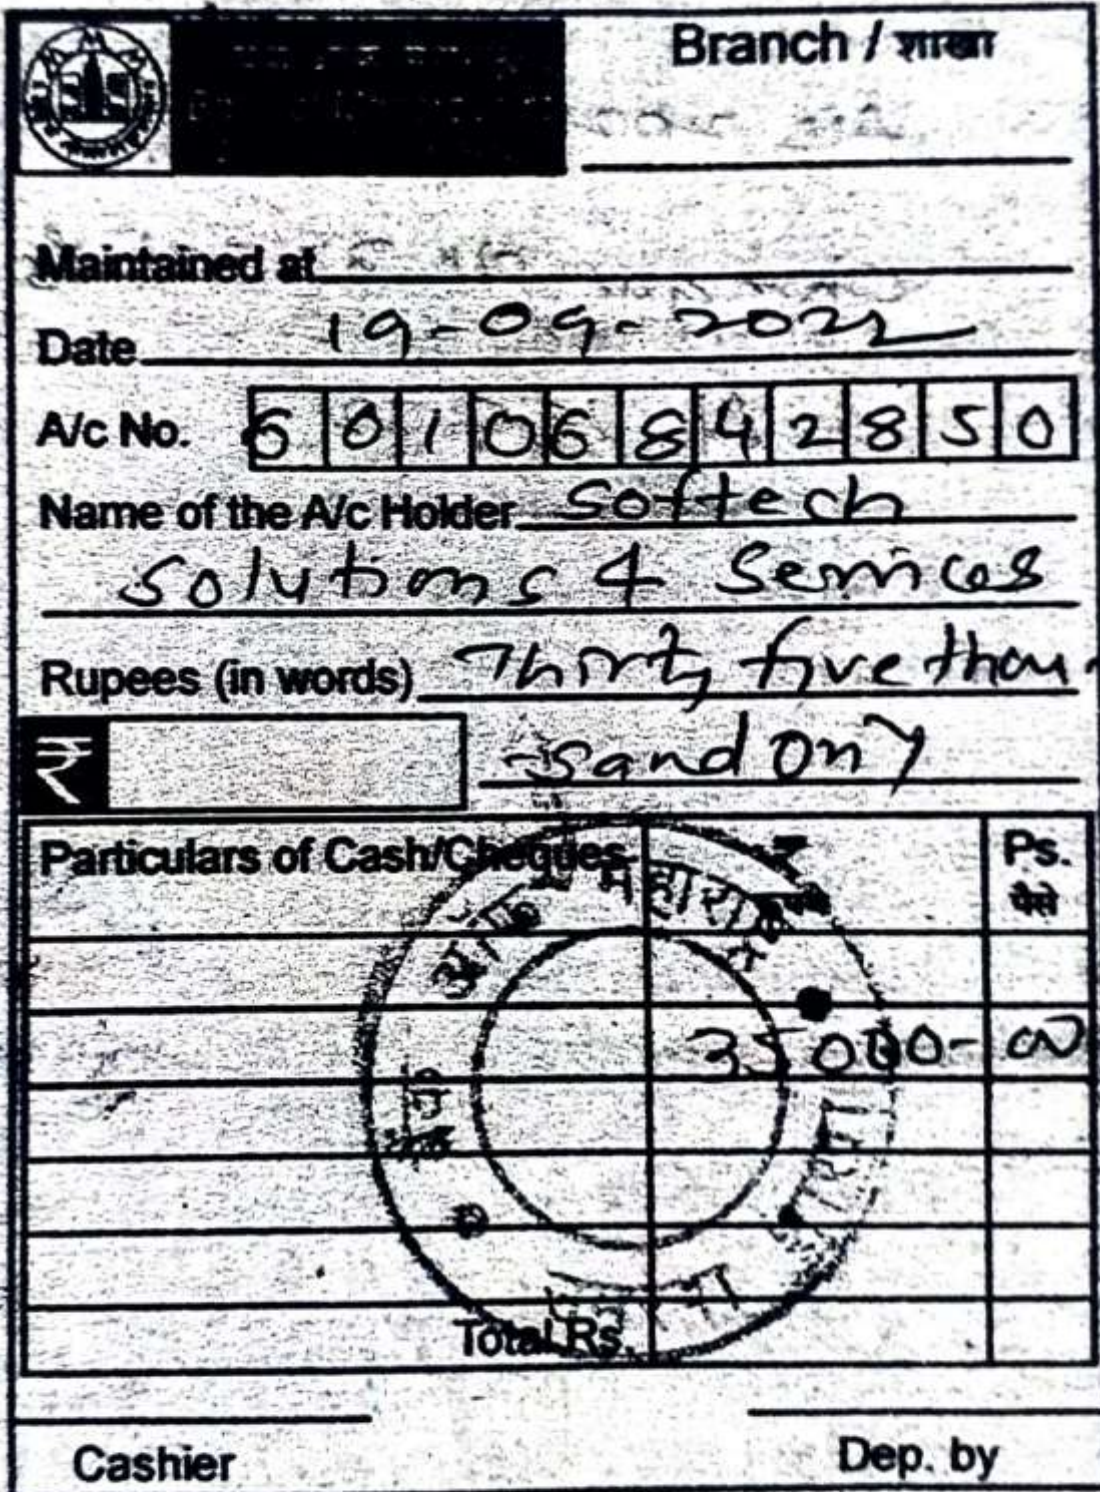 Branch / शाखा
Maintained at
Date 19-09-2022
A/c No. 60106842850
Name of the A/c Holder Softech
Solutions & Services
Rupees (in words) Thirty five thou-
₹ -sand Ony
Particulars of Cash/Cheques ₹ रुपये Ps. पैसे
बैंक ऑफ महाराष्ट्र
35000- 00
शाखा
Total Rs.
Cashier Dep. by